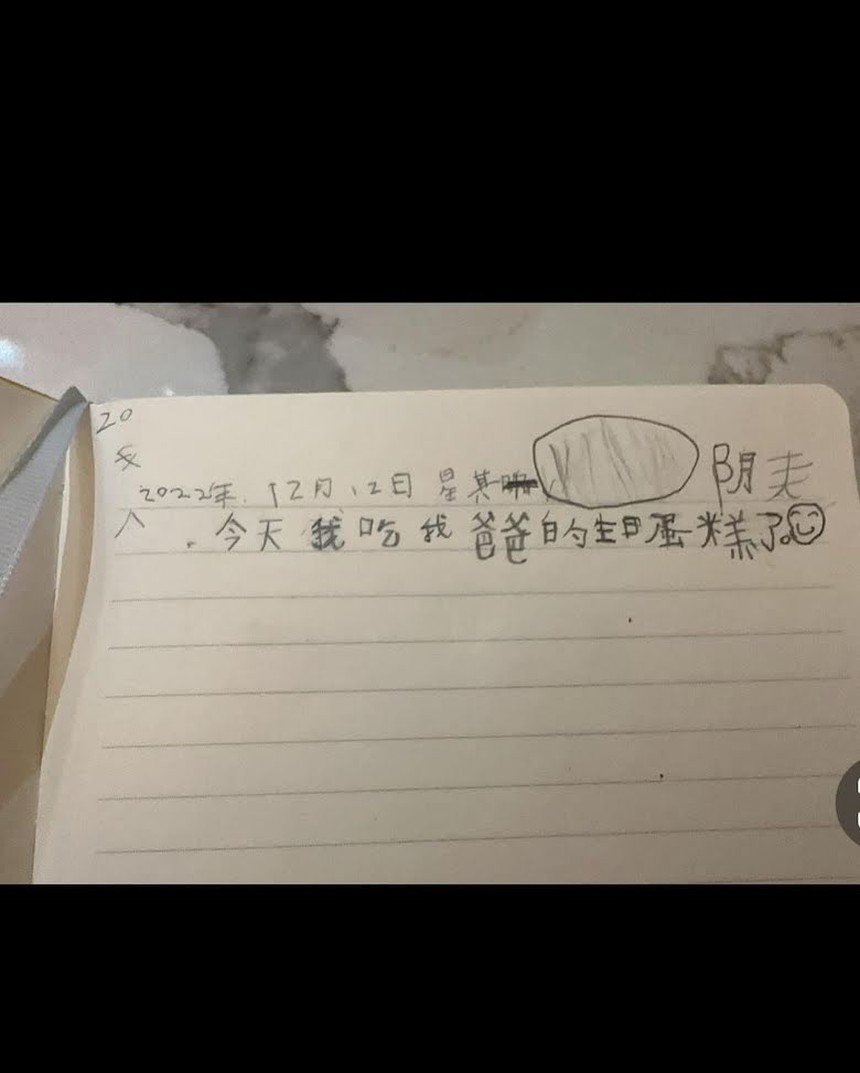 20
2022年.12月12日 星其 阴夫
.今天我吃我爸爸的生日蛋糕了。